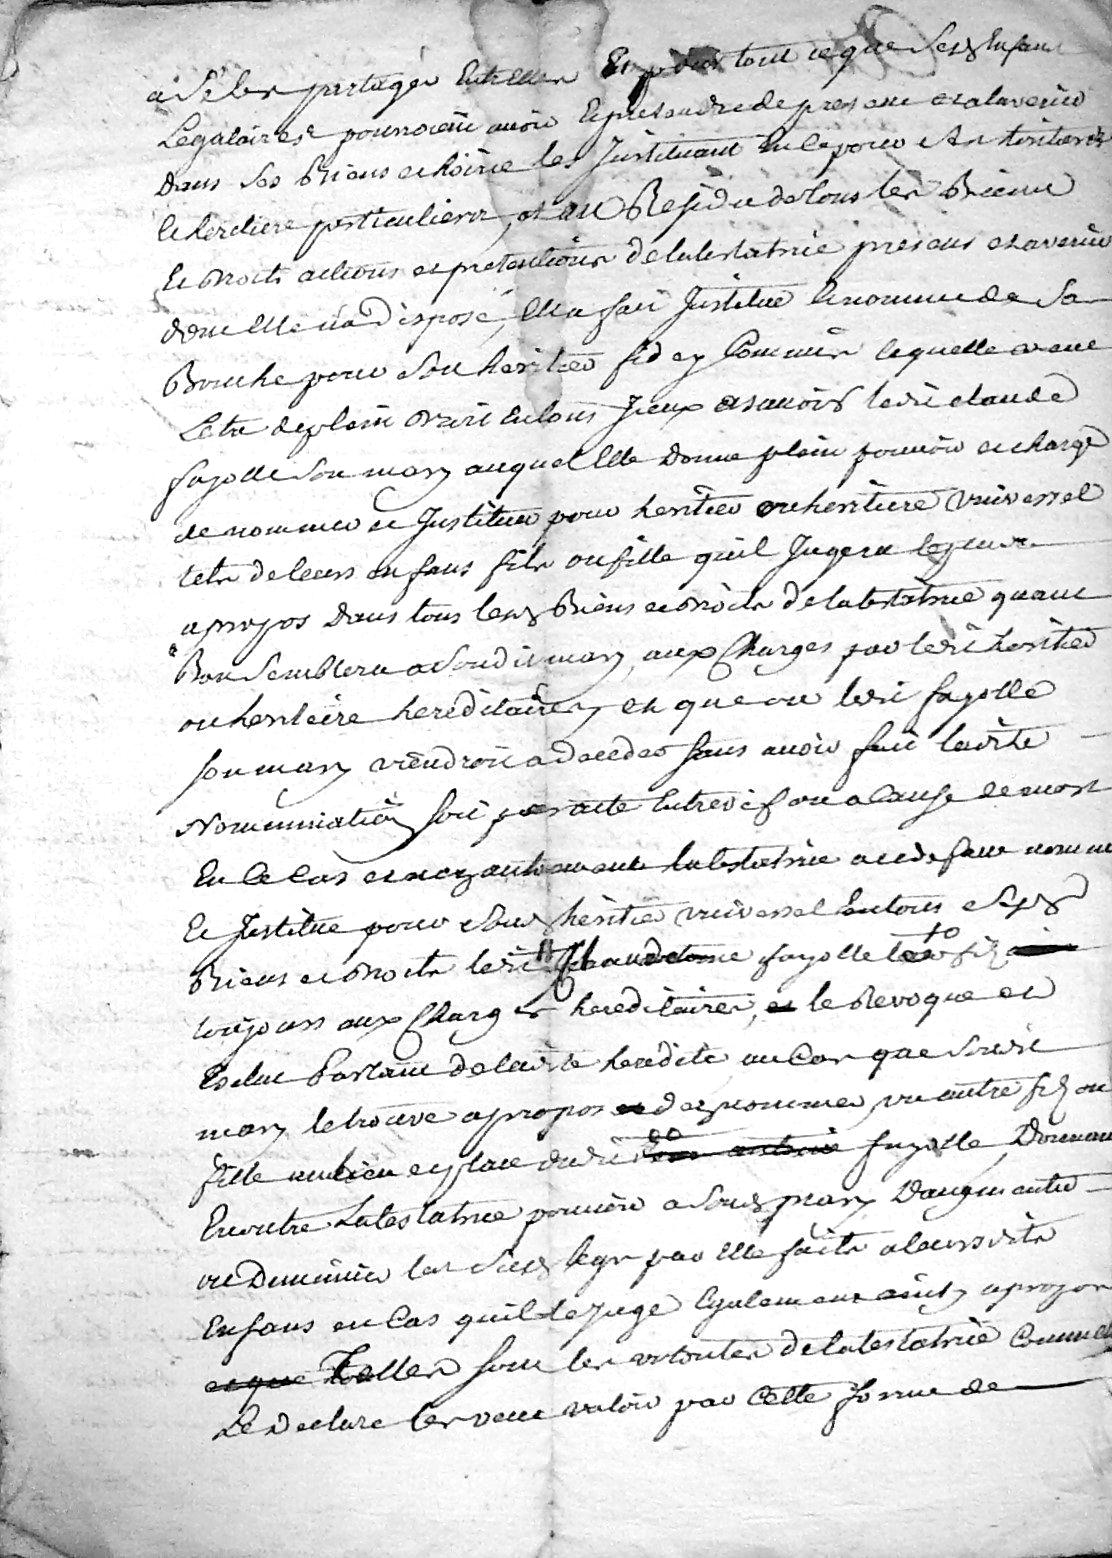 a Seler partager Entre elles Et pour tout ce que Sesd Enfans
Legataires pourroient avoir Et pretendre de present et alavenir
Dans Ses Biens et hoirie les Instituant En ce pour Ses heritiers
et heritiere particuliers, et au Residu de tous les Biens
Et Droits actions et pretentions de la testatrice presens et avenir
dont Elle n'a Disposé, Elle a fait Institué et nommé de Sa
Bouche pour Son heritier fidey Commis lequelle veut
Letre de plein Droit En tous Jceux asavoir ledit claude
fayolle Son mary auquel Elle Donne plein pouvoir et charge
de nommer et Jnstituer pour heritier ou heritiere Universel
tels de leurs enfans fils ou fille quil Jugera
apropos Dans tous lesd Biens et Droits de la testatrice quant
Bon Semblera a Sondit mary, aux Charges par ledit heritier
ou heritiere hereditaires, et que ou ledit fayolle
Son mary viendroit a decedes Sans avoir fait ladite
Nomination Soit par acte Entrevif ou a Cause de mort
En Ce Cas la testatrice a cedefaut nomme
Et Jnstitue pour Sond heritier universel En tous Sesd
Biens et Droits ledit fayolle fils
toujours aux Charges hereditaires, et le Revoque et
Exclut Partant de ladite heredité au Cas que Sondit
mary le trouve apropos et de nommer un autre fils ou
fille au lieu et place dudit antoine fayolle, Donnant
En outre La testatrice pouvoir a Sond mary D'augmenter
ou Diminuer les Susd legs par Elle faits a leursdits
Enfans en Cas quil le Juge Egalement ainsy apropos
et que telles Sont les volontés de la testatrice Comme
Le Declare les veut valoir par Cette forme de